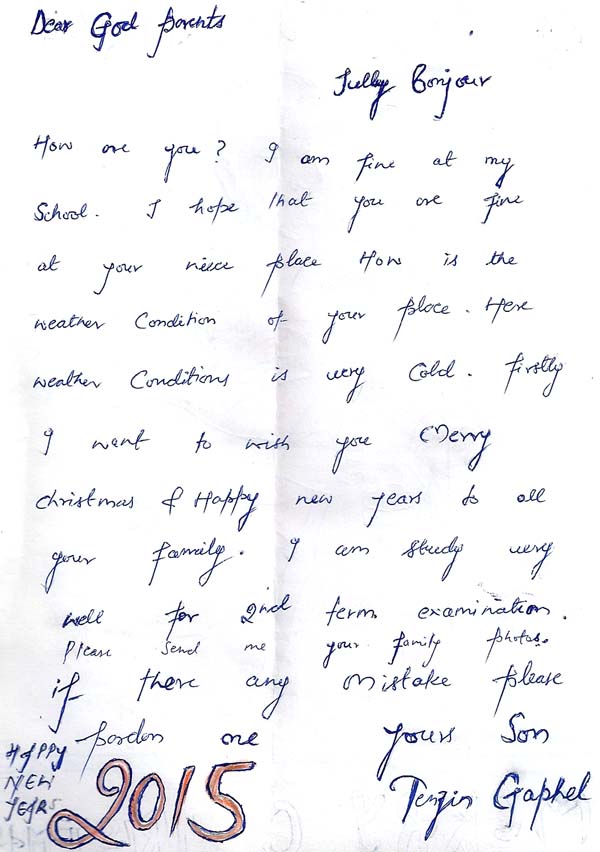 Dear God parents
Jully Bonjour
How are you? I am fine at my
School. I hope that you are fine
at your niece place How is the
weather Condition of your place. Here
weather Conditions is very Cold. Firstly
I want to wish you Merry
christmas & Happy new years to all
your family. I am study very
well for 2nd term examination.
Please send me your family photos.
if there any mistake please
pardon me yours Son
HAPPY
NEW
YEARS
2015
Tenzin Gaphel